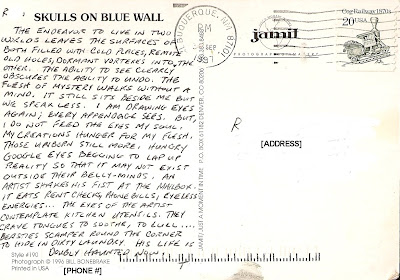 R
SKULLS ON BLUE WALL
THE ENDEAVOR TO LIVE IN TWO
WORLDS LEAVES THE SURFACES OF
BOTH FILLED WITH COLD PLACES, REMOTE
OLD HOLES, DORMANT VORTEXES INTO THE
OTHER. THE ABILITY TO SEE CLEARLY
OBSCURES THE ABILITY TO UNDO. THE
FLESH OF MYSTERY WALKS WITHOUT A
MIND. IT STILL SITS BESIDE ME BUT
WE SPEAK LESS. I AM DRAWING EYES
AGAIN; EVERY APPENDAGE SEES. BUT,
I DO NOT FEED THE EYES MY SOUL,
MY CREATIONS HUNGER FOR MY FLESH,
THOSE UNBORN STILL MORE. HUNGRY
GOOGLE EYES BEGGING TO LAP UP
REALITY SO THAT IT MAY NOT EXIST
OUTSIDE THEIR BELLY-MINDS. AN
ARTIST SHAKES HIS FIST AT THE MAILBOX.
IT EATS RENT CHECKS, PHONE BILLS, EYELESS
ENERGIES... THE EYES OF THE ARTIST
CONTEMPLATE KITCHEN UTENSILS. THEY
CRAVE TONGUES TO SOOTHE, TO LULL....
BEASTIES SCAMPER ROUND THE CORNER
TO HIDE IN DIRTY LAUNDRY. HIS LIFE IS
DOUBLY HAUNTED NOW.
Style #190
Photograph © 1996 BILL BONEBRAKE
Printed in USA
[PHONE #]
JAMIL JUST A MOMENT IN TIME P.O. BOX
ALBUQUERQUE, NM
PM
SEP
1997
87101
jamil
Cog Railway 1870s
20 USA
R
[ADDRESS]